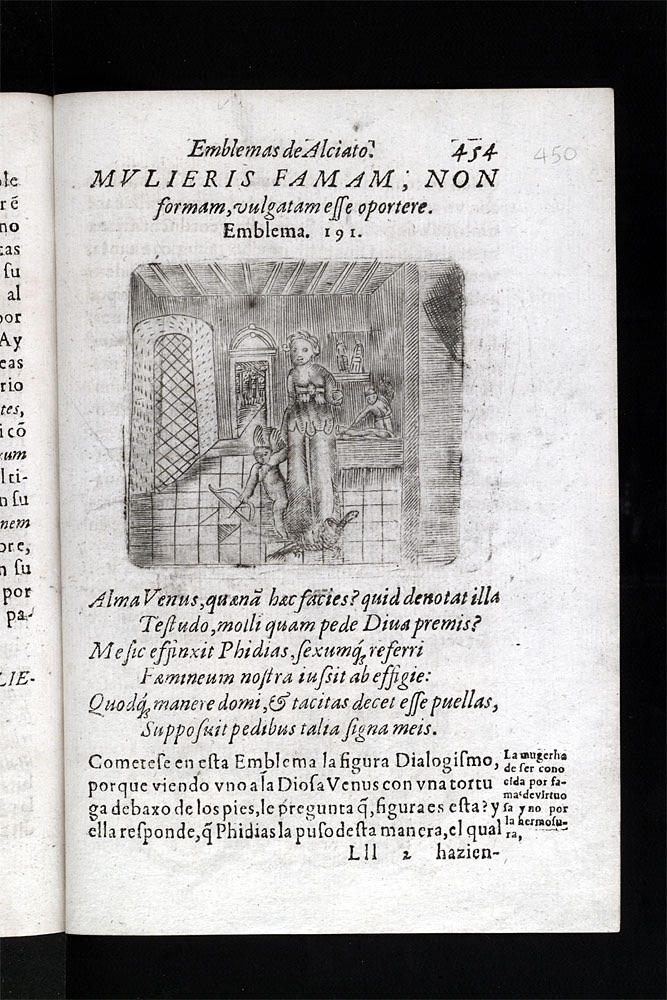 Emblemas de Alciato. 454
450
MVLIERIS FAMAM, NON
formam, vulgatam eſſe oportere.
Emblema. 191.
Alma Venus, quænã hæc facies? quid denotat illa
Teſtudo, molli quam pede Diua premis?
Me ſic effinxit Phidias, ſexumq́; referri
Fæmineum noſtra iuſsit ab effigie:
Quodq́; manere domi, & tacitas decet eſſe puellas,
Suppoſuit pedibus talia ſigna meis.
Cometeſe en eſta Emblema la figura Dialogiſmo,
porque viendo vno a la Dioſa Venus con vna tortu
ga debaxo de los pies, le pregunta q̃, figura es eſta? y
ella reſponde, q̃ Phidias la puſo deſta manera, el qual
Lll 2 hazien-
La muger ha
de ſer cono
cida por fa-
ma de virtuo
ſa y no por
la hermoſu-
ra,
ble
rẽ
no
tas
ſu
al
por
Ay
eas
rio
tes,
i cõ
rum
lti-
n ſu
nem
bre,
n ſu
por
pa-
LIE-